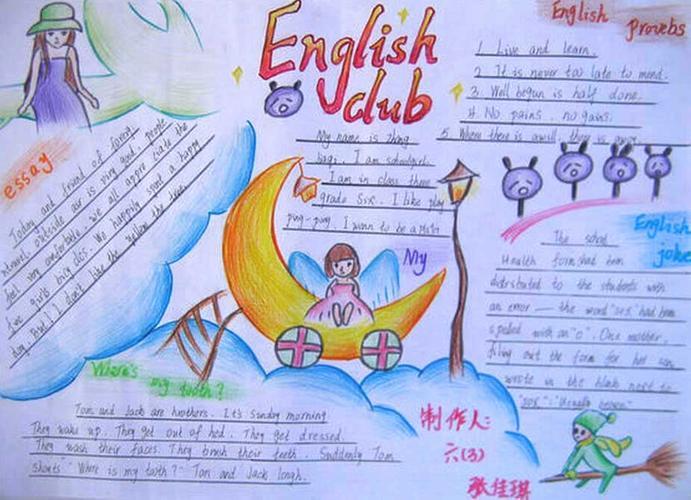 English club
English Proverbs
1. Live and learn.
2. It is never too late to mend.
3. Well begun is half done.
4. No pains. no gains.
5. Where there is a will, there is
essay
Today and friend of
travel. outside air is very good. people
feel very comfortable. we all appreciate the
five girls We happily spent a happy
day. But I don't like the the
My name is Zhang
I am schoolgirls
I am in class three
grade Six. I like play
ping-pong. I wann to be a
My
English joke
The school
Health form had been
distributed to the students with
an error — the word "sex" had been
spelled with an "o". One mother,
filing out the form for her son,
wrote in the blank next to
"sox": "Usually brown"
Where's my tooth?
Tom and Jack are brothers. It's sunday morning.
They wake up. They get out of bed. They get dressed.
They wash their faces. They brush their teeth. Suddenly Tom
shouts "Where is my tooth?" Tom and Jack laugh.
制作人:
六(3)
张佳琪